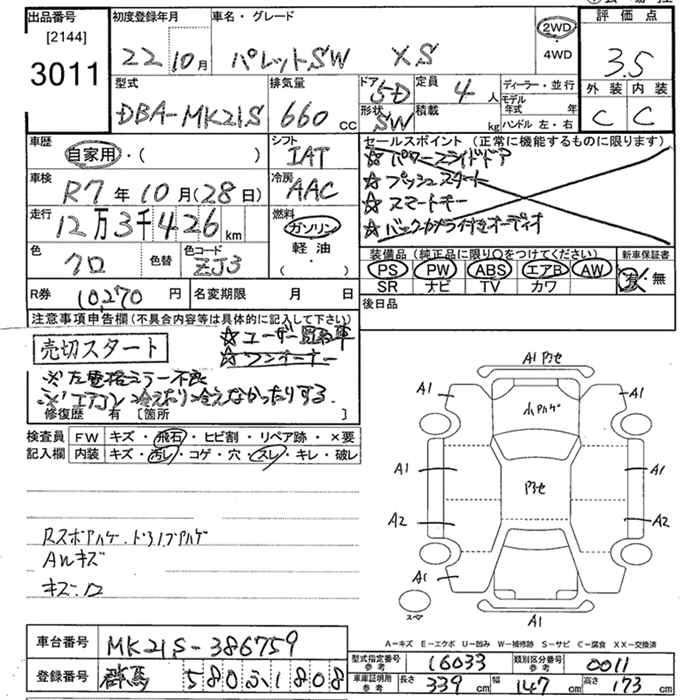 出品番号
[2144]
3011
初度登録年月
22 10月
車名・グレード
パレットSW XS
2WD
4WD
評価点
3.5
外装 内装
C C
型式
DBA-MK21S
排気量
660 cc
ドア
5D
形状
SW
定員
4人
積載
kg
ディーラー・並行
モデル年式 年
ハンドル 左・右
車歴
自家用・( )
シフト
IAT
セールスポイント(正常に機能するものに限ります)
☆パワースライドドア
☆プッシュスタート
☆スマートキー
☆バックカメラ付きオーディオ
車検
R7年10月(28日)
冷房
AAC
走行
12万3千426km
燃料
ガソリン
軽油
( )
色
クロ
色替
色コード
ZJ3
装備品(純正品に限り○をつけてください)
PS PW ABS エアB AW
SR ナビ TV カワ
新車保証書
有・無
R券
10,270円
名変期限 月 日
後日品
注意事項申告欄(不具合内容等は具体的に記入して下さい)
売切スタート
☆ユーザー買取車
☆ワンオーナー
※左電格ミラー不良
※エアコン冷えたり冷えなかったりする
修復歴 有 [箇所 ]
検査員記入欄
FW キズ・飛石・ヒビ割・リペア跡・×要
内装 キズ・汚レ・コゲ・穴・スレ・キレ・破レ
AWキズ
A1
A1
A1
A1
A1
A2
A2
A1
A1
A-キズ E-エクボ U-凹み W-補修跡 S-サビ C-腐食 XX-交換済
車台番号
MK21S-386759
登録番号
群馬 580ふ1808
型式指定番号 参考
16033
類別区分番号 参考
0011
車庫証明用 参考
長さ 339cm 幅 147cm 高さ 173cm